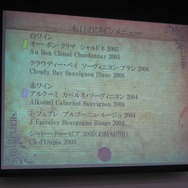 本日のワインメニュー
白ワイン
オー・ボン・クリマ シャルドネ 2005
Au Bon Climat Chardonnay 2005
クラウディー・ベイ ソーヴィニヨン・ブラン 2006
Cloudy Bay Sauvignon Blanc 2006
赤ワイン
アルクーミ カベルネ・ソーヴィニヨン 2004
Alkoomi Cabernet Sauvignon 2004
J・フェブレ ブルゴーニュ・ルージュ 2004
J Faiveley Bourgogne Rouge 2004
シャトー 2005